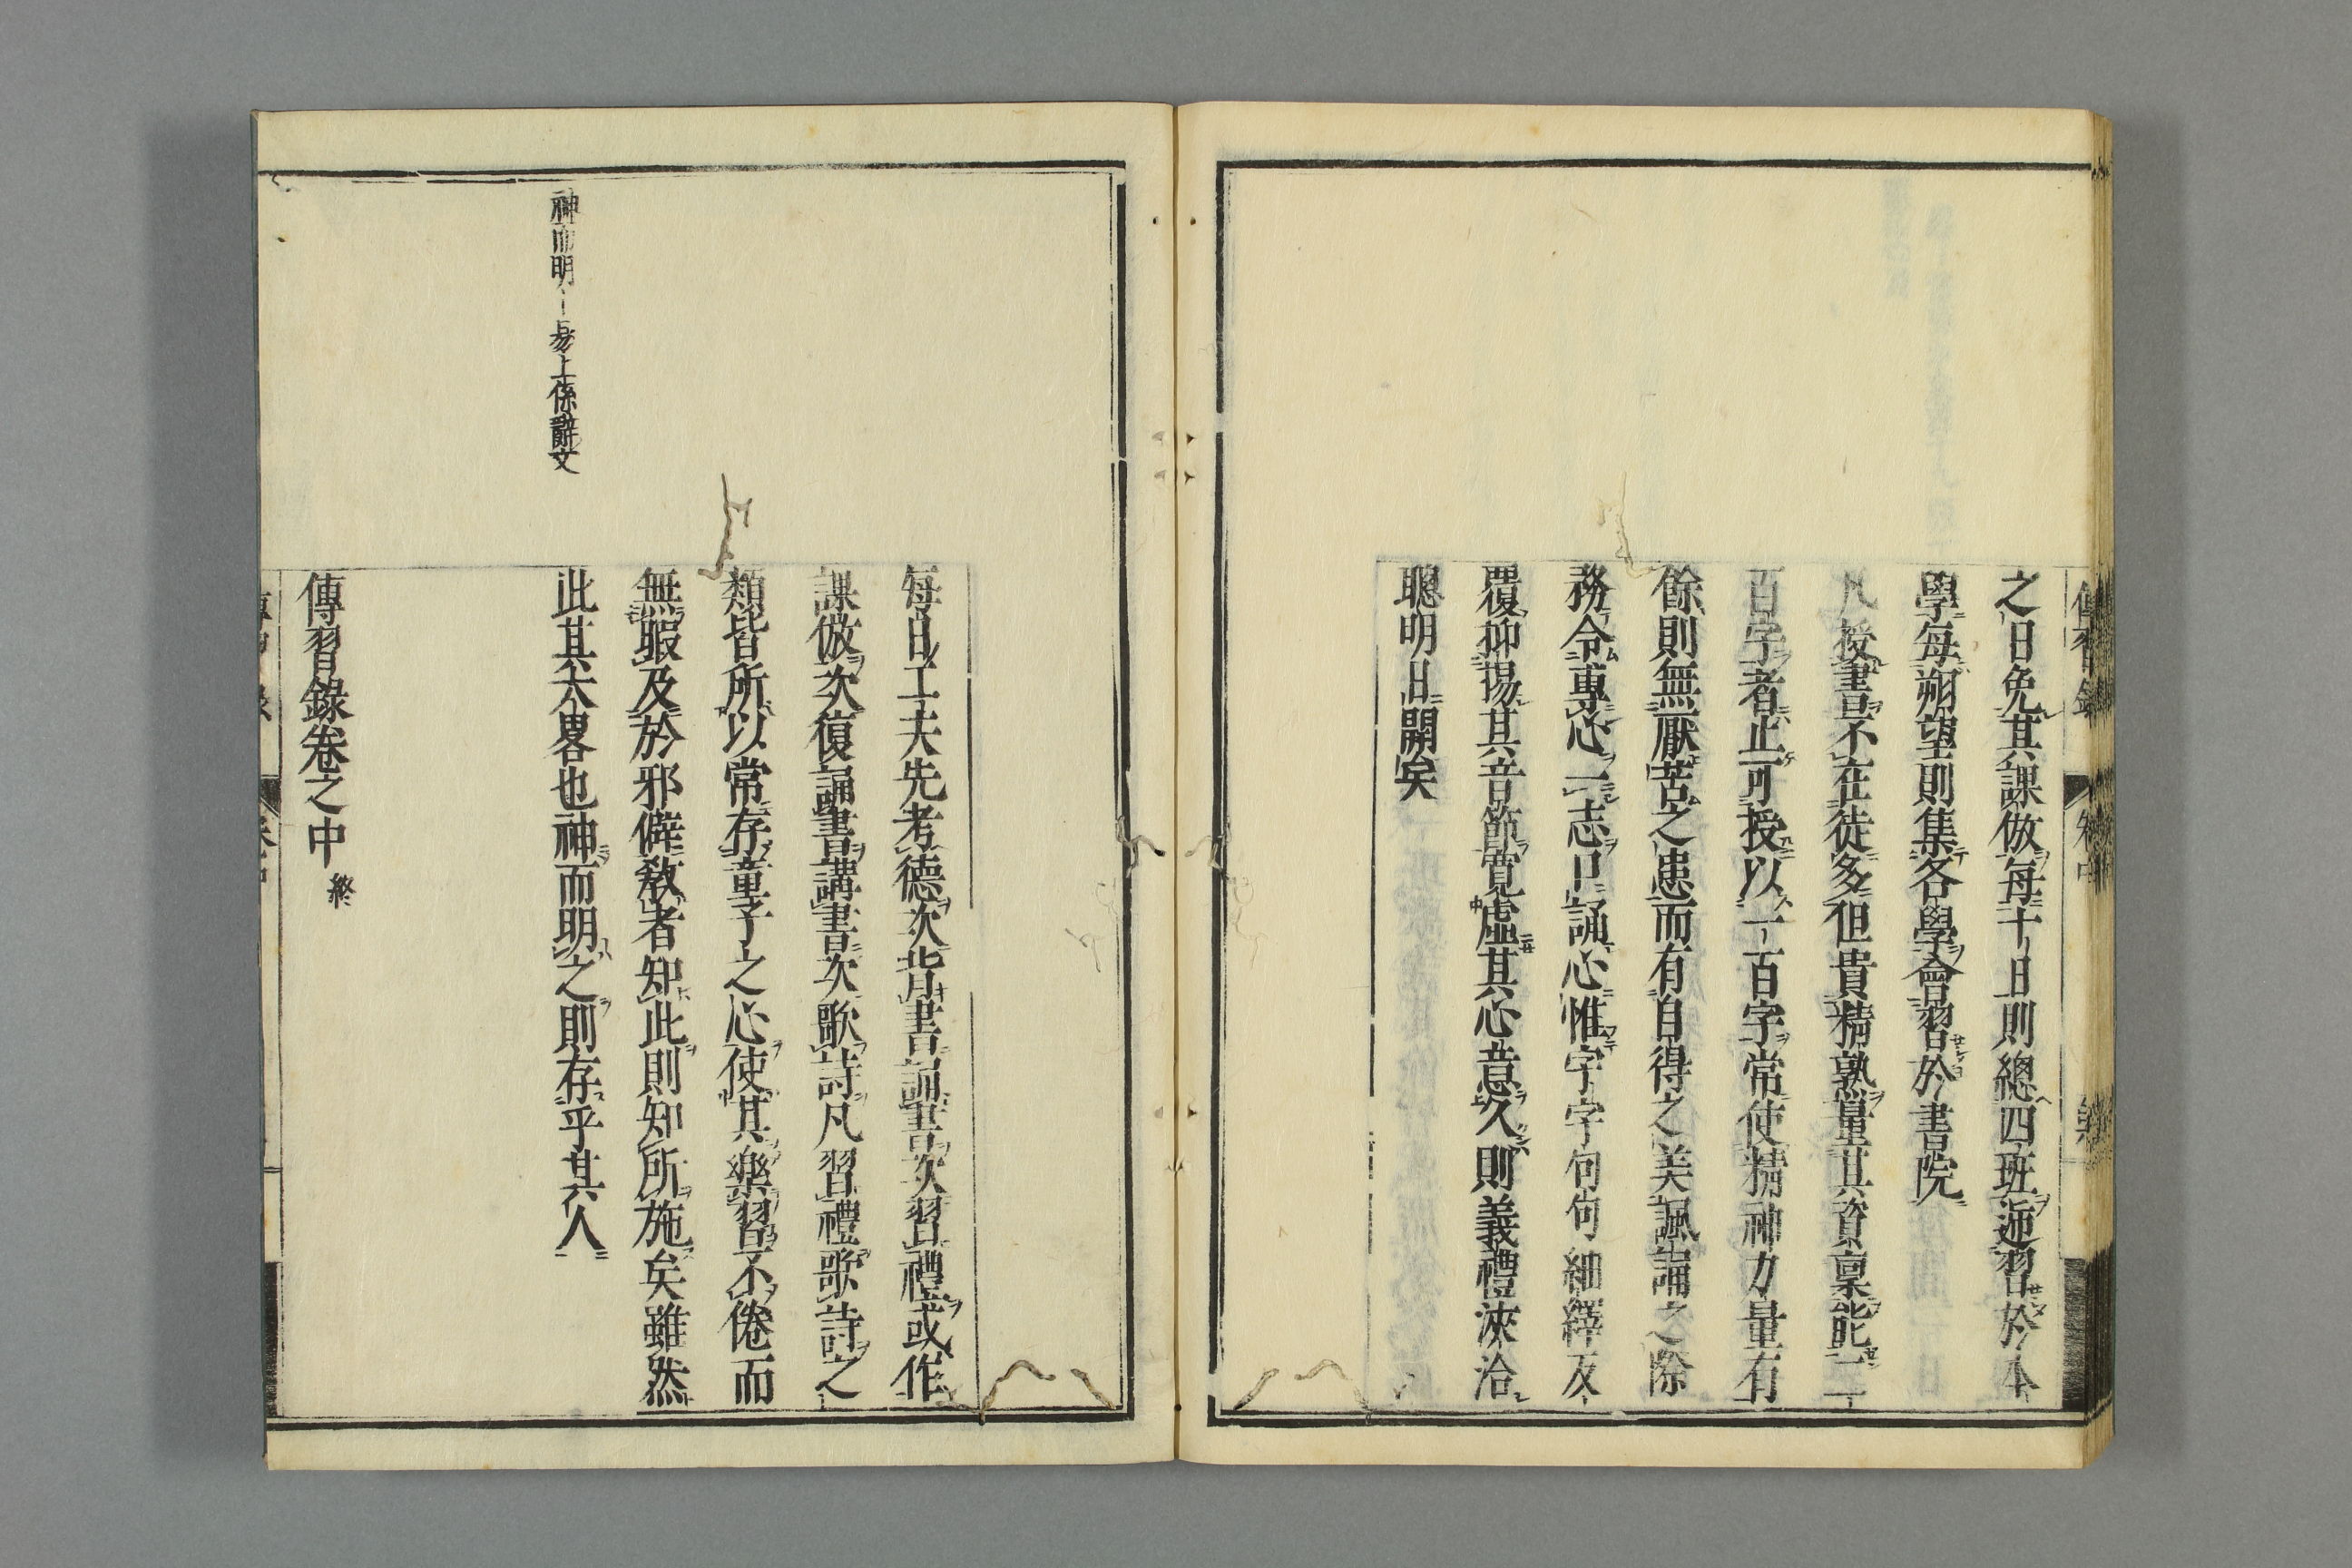 之日免其課倣每十日則總四班遞習於本
學每朔望則集各學會習於書院
凡授書不在徒多但貴精熟量其資稟能二
百字者止可授以一百字常使精神力量有
餘則無厭苦之患而有自得之美諷誦之際
務令專心一志口誦心惟字字句句紬繹反
覆抑揚其音節寬虛其心意久則義禮浹洽
聰明日開矣
每日工夫先考德次背書誦書次習禮或作
課倣次復誦書講書次歌詩凡習禮歌詩之
類皆所以常存童子之心使其樂習不倦而
無暇及於邪僻教者知此則知所施矣雖然
神而明一易上係辭文
此其大畧也神而明之則存乎其人
傳習錄卷之中 終